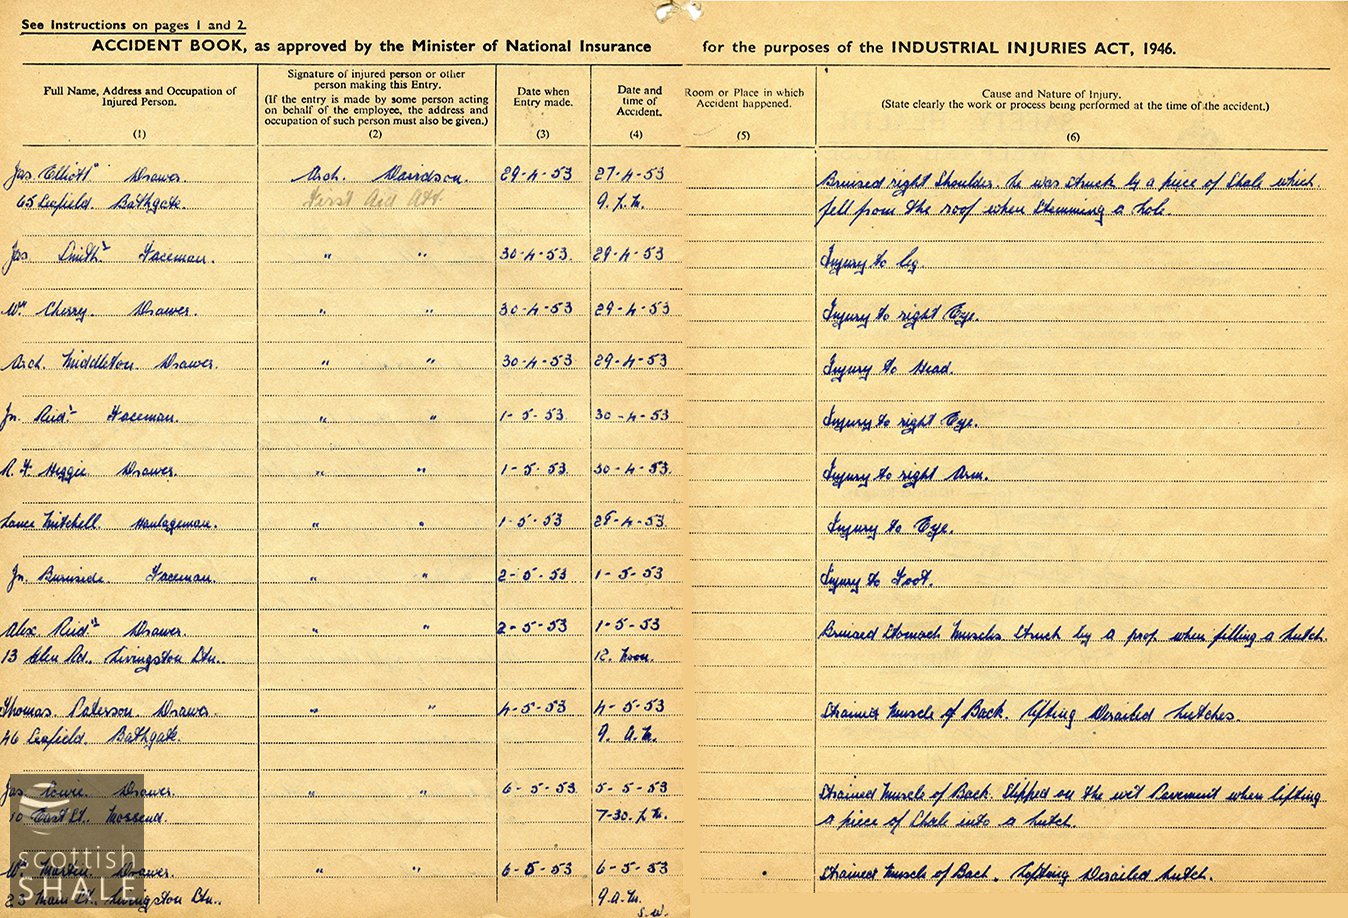 See Instructions on pages 1 and 2
ACCIDENT BOOK, as approved by the Minister of National Insurance for the purposes of the INDUSTRIAL INJURIES ACT, 1946.
Full Name, Address and Occupation of
Injured Person.
(1)
Signature of injured person or other
person making this Entry.
(If the entry is made by some person acting
on behalf of the employee, the address and
occupation of such person must also be given.)
(2)
Date when
Entry made.
(3)
Date and
time of
Accident.
(4)
Room or Place in which
Accident happened.
(5)
Cause and Nature of Injury.
(State clearly the work or process being performed at the time of the accident.)
(6)
Jas. Elliott Drawer Arch. Davidson. 29-4-53 27-4-53 Bruised right Shoulder. he was struck by a piece of Shale which
65 Leafield. Bathgate. First Aid Att. 9. P.M. fell from the roof when Stemming a hole.
Jas Smith Faceman. " " 30-4-53 29-4-53 Injury to leg.
Wm Cherry. Drawer. " " 30-4-53 29-4-53 Injury to right Eye.
Arch. Middleton. Drawer. " " 30-4-53 29-4-53 Injury to Head.
Jn. Reid Faceman. " " 1-5-53 30-4-53 Injury to right Eye.
R. F. Heggie Drawer. " " 1-5-53 30-4-53 Injury to right Arm.
Lance Mitchell Haulageman. " " 1-5-53 29-4-53 Injury to Eye.
Jn. Burnside. Faceman. " " 2-5-53 1-5-53 Injury to Foot.
Alex. Reid Drawer. " " 2-5-53 1-5-53 Bruised Stomach Muscles Struck by a prop when filling a hutch.
13 Glen Rd., Livingston Stn.. 12. Noon.
Thomas. Paterson. Drawer. " " 4-5-53 4-5-53 Strained Muscle of Back. lifting Derailed hutches.
46 Leafield. Bathgate. 9. A.M.
Jas. Drawer. " " 6-5-53 5-5-53 Strained Muscle of Back. Slipped on the wet Pavement when lifting
10 East St. Mossend. 7-30. P.M. a piece of Shale into a hutch.
Wm Martin. Drawer. " " 6-5-53 6-5-53 Strained Muscle of Back. Lifting Derailed hutch.
23 Main St. Livingston Stn.. 9.A.M.
S.W.
scottish
SHALE